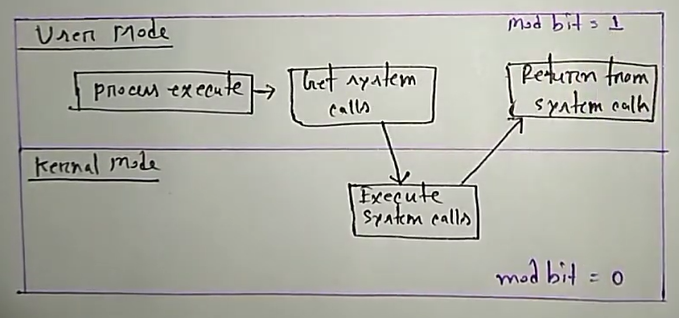 User Mode
mod bit = 1
process execute
Get system
calls
Return from
system calls
Kernal mode
Execute
system calls
mod bit = 0